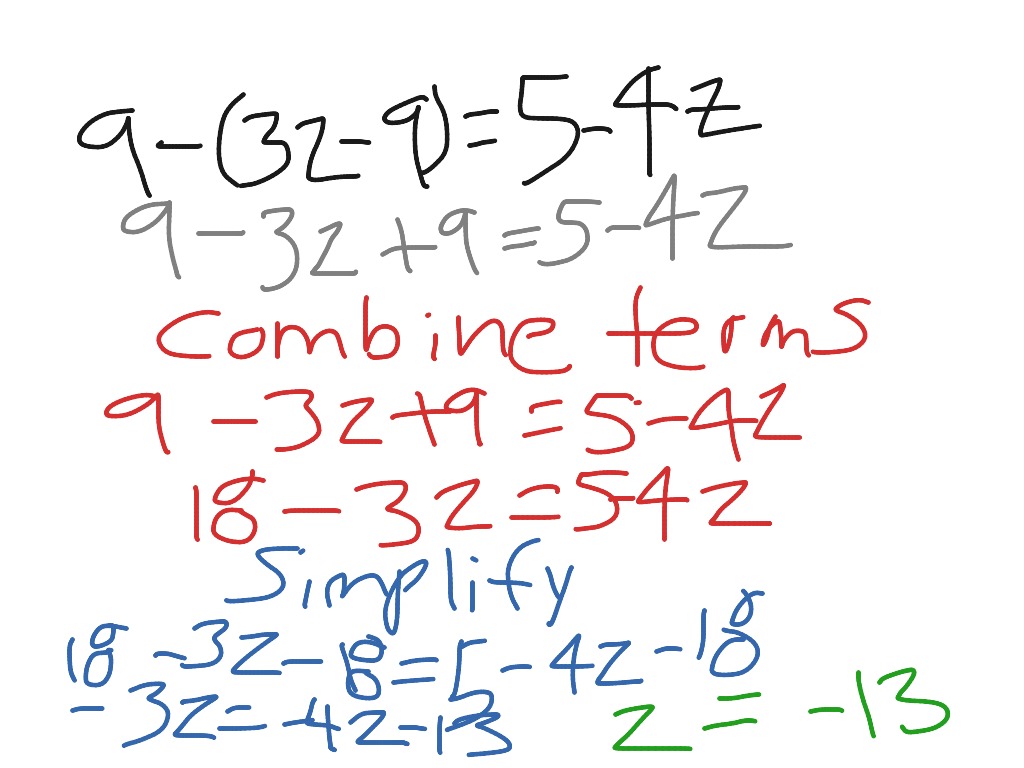 9-(3z-9)=5-4z
9-3z+9=5-4z
Combine terms
9-3z+9=5-4z
18-3z=5-4z
Simplify
18-3z-18=5-4z-18
-3z=-4z-13
z=-13